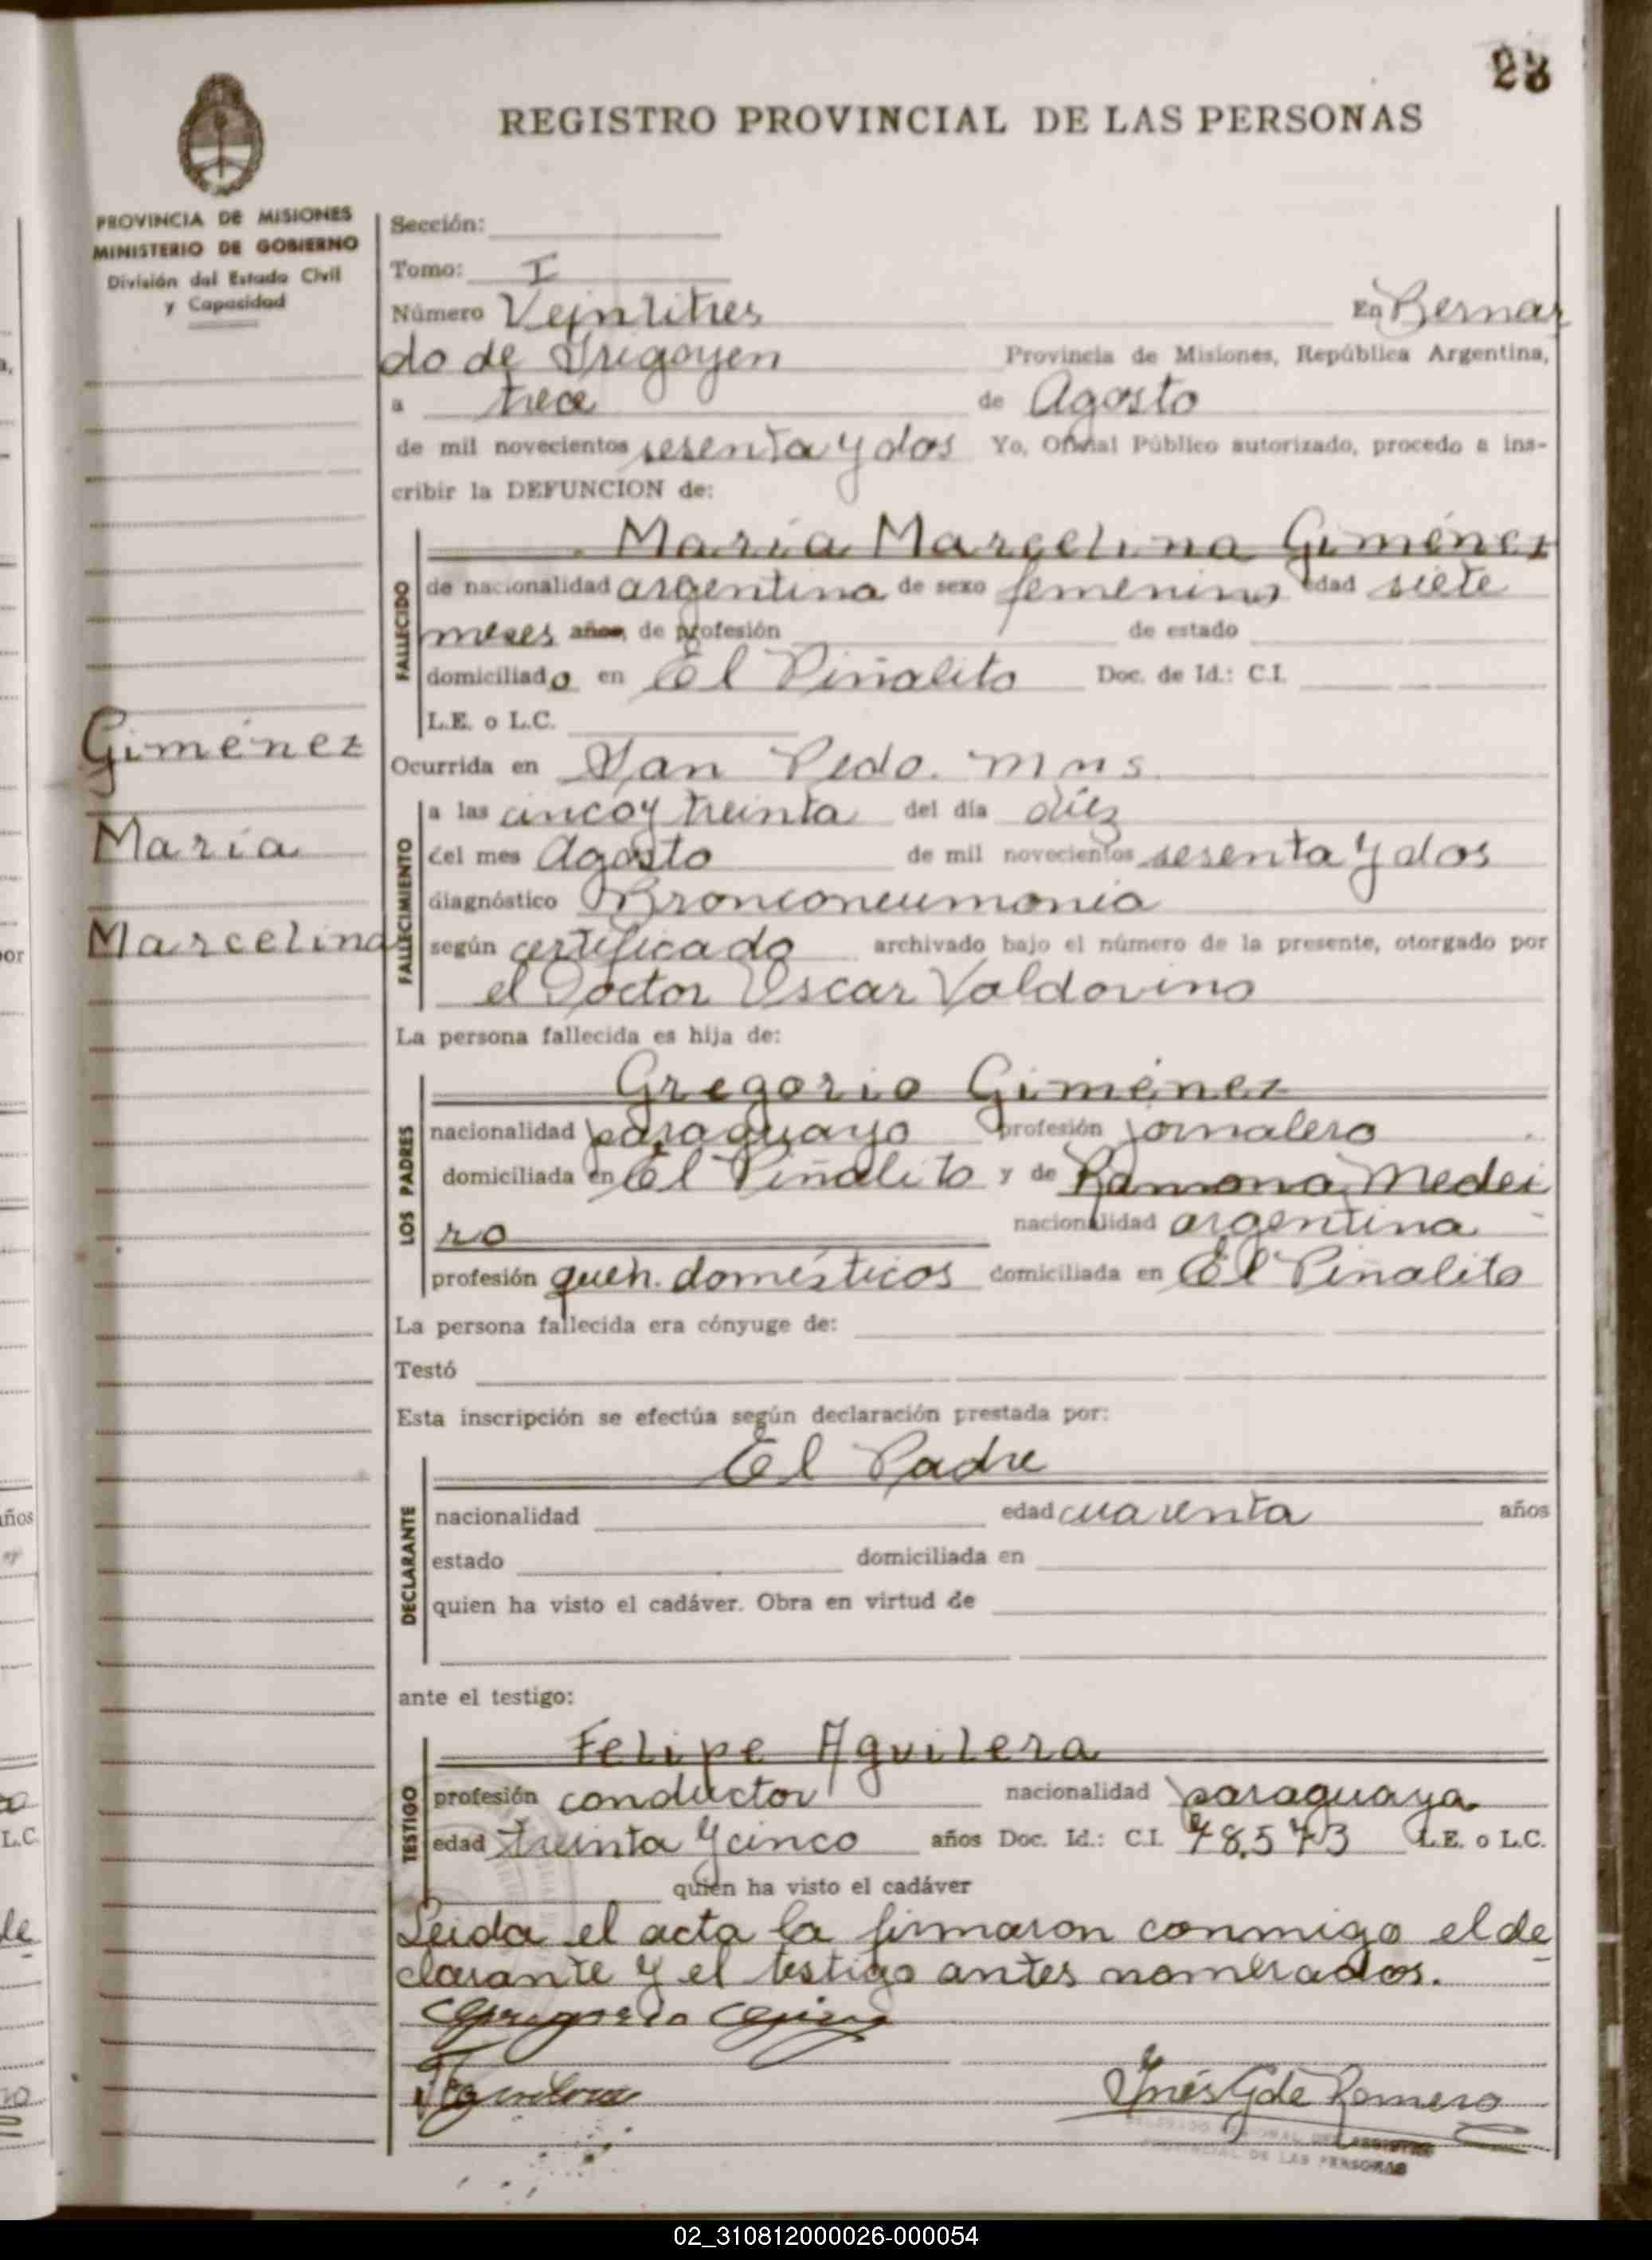 23
REGISTRO PROVINCIAL DE LAS PERSONAS
PROVINCIA DE MISIONES
MINISTERIO DE GOBIERNO
División del Estado Civil
y Capacidad
Sección:
Tomo: I
Número Veintitres En Bernar
do de Irigoyen Provincia de Misiones, República Argentina,
a trece de Agosto
de mil novecientos sesenta y dos Yo, Oficial Público autorizado, procedo a ins-
cribir la DEFUNCION de:
María Marcelina Giménez
FALLECIDO
de nacionalidad argentina de sexo femenino edad siete
meses años, de profesión de estado
domiciliado en El Piñalito Doc. de Id.: C.I.
L.E. o L.C.
Giménez
María
Marcelina
Ocurrida en San Pedo. Mns.
FALLECIMIENTO
a las cinco y treinta del día diez
del mes Agosto de mil novecientos sesenta y dos
diagnóstico Bronconeumonia
según certificado archivado bajo el número de la presente, otorgado por
el Doctor Oscar Valdovino
La persona fallecida es hija de:
LOS PADRES
Gregorio Giménez
nacionalidad paraguayo profesión jornalero
domiciliada en El Piñalito y de Ramona Medei
ro nacionalidad argentina
profesión queh. domésticos domiciliada en El Piñalito
La persona fallecida era cónyuge de:
Testó
Esta inscripción se efectúa según declaración prestada por:
DECLARANTE
El Padre
nacionalidad edad cuarenta años
estado domiciliada en
quien ha visto el cadáver. Obra en virtud de
ante el testigo:
TESTIGO
Felipe Aguilera
profesión conductor nacionalidad paraguaya
edad treinta y cinco años Doc. Id.: C.I. 48.573 L.E. o L.C.
quien ha visto el cadáver
Leida el acta la firmaron conmigo el de
clarante y el testigo antes nombrados.
Gregorio
Inés G de Romero
PROVINCIAL DE LAS PERSONAS
02_310812000026-000054